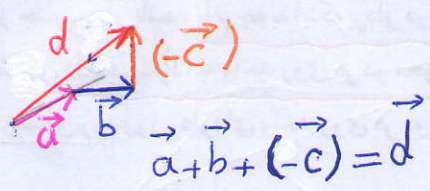 d
(-c⃗)
a⃗
b⃗
a⃗+b⃗+(-c⃗)=d⃗